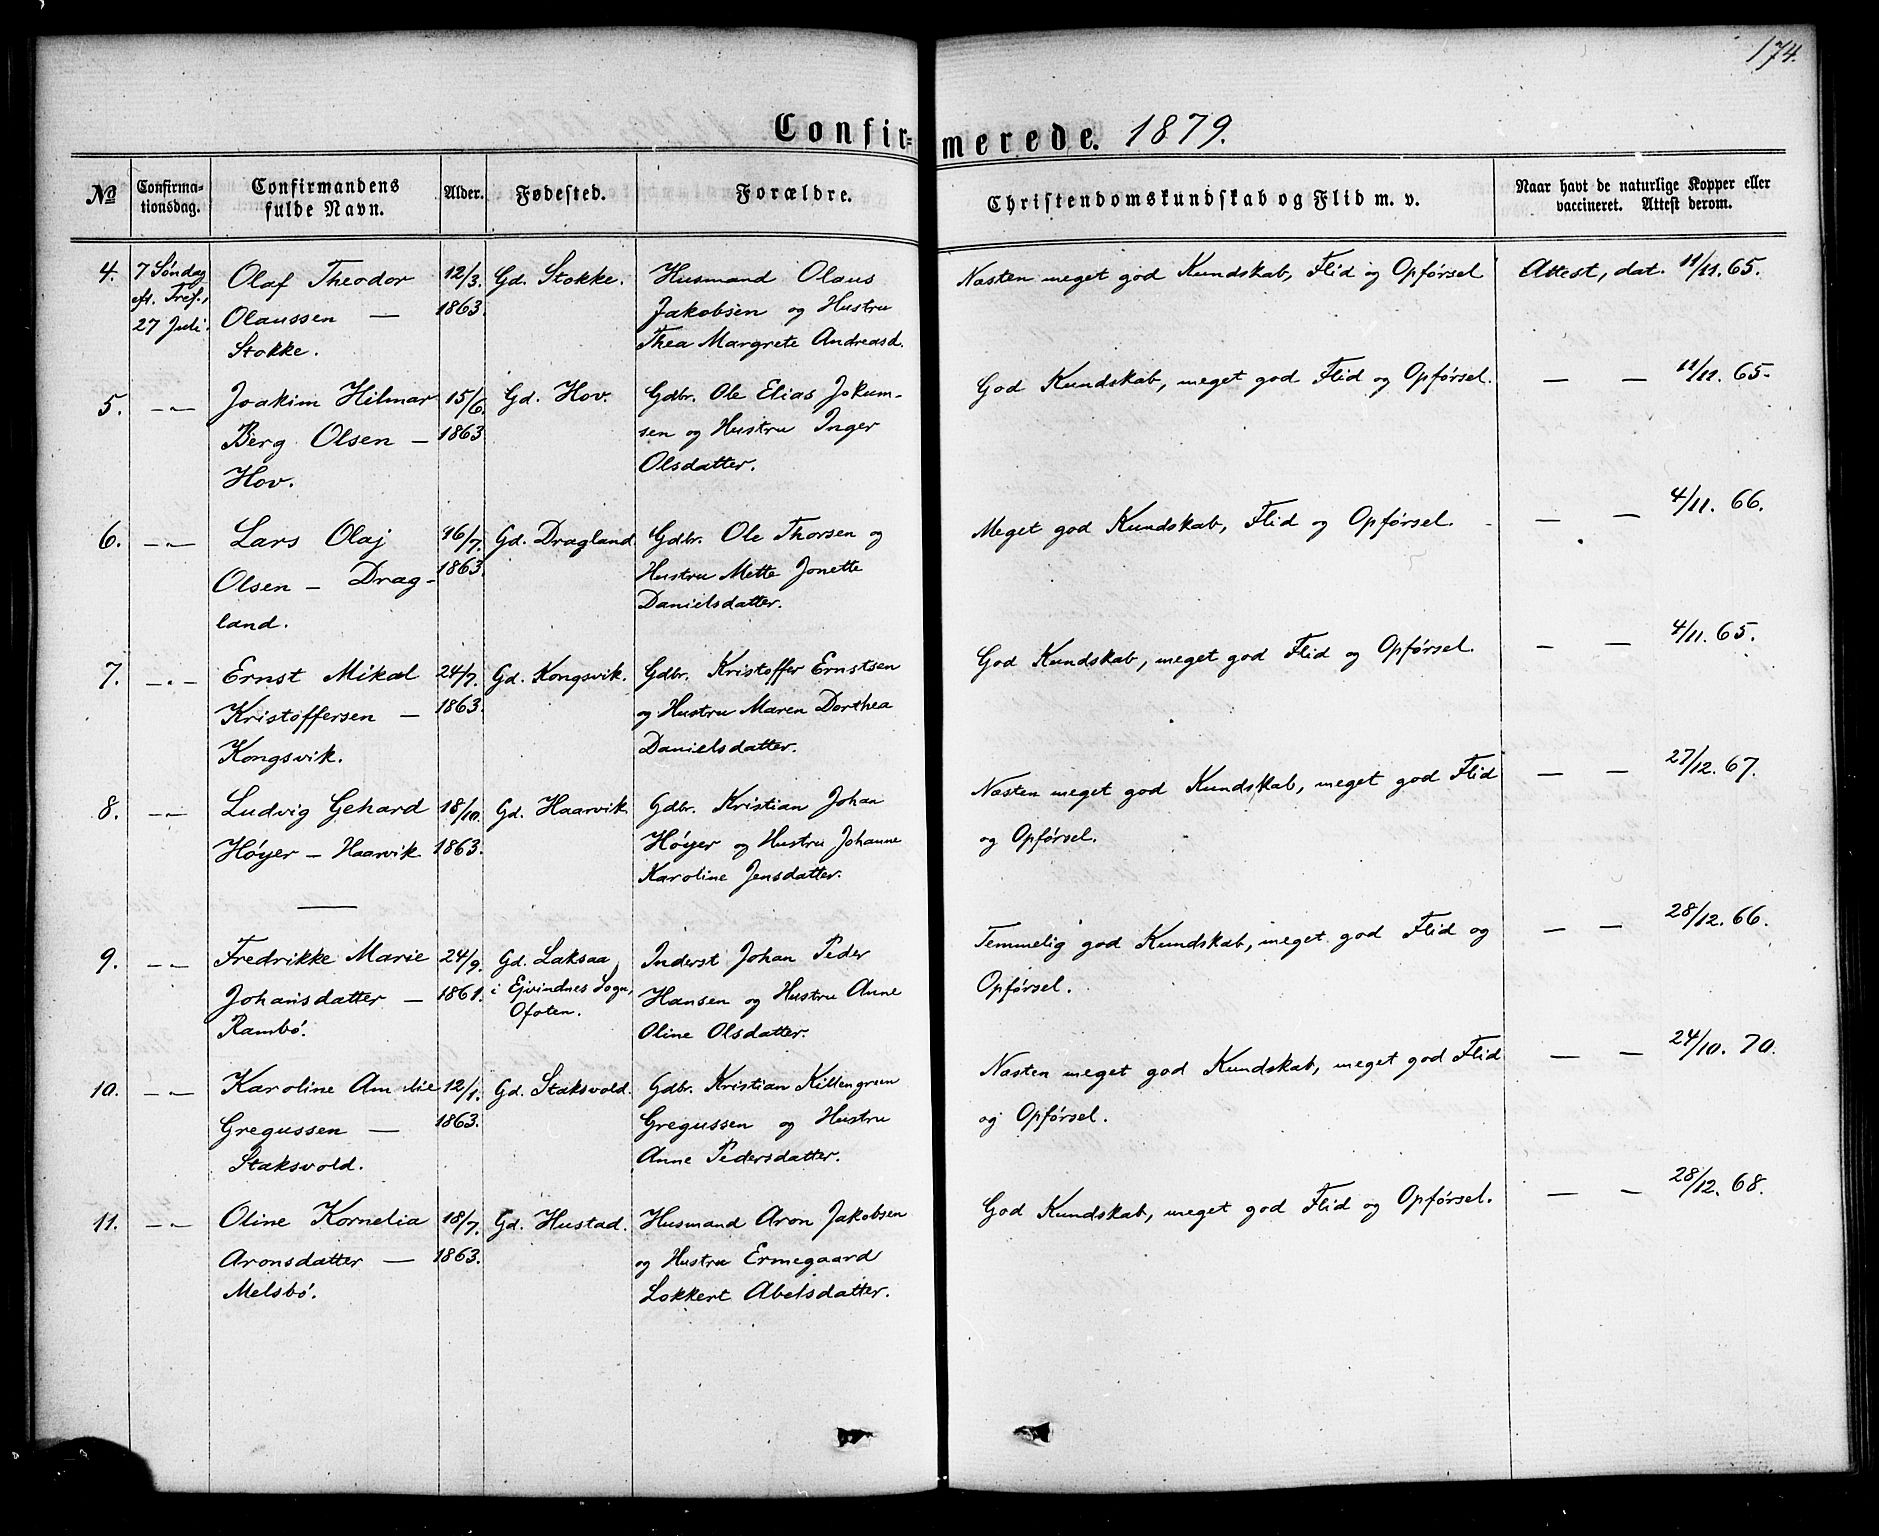 174.
Confir=merede. 1879.
No
Confirma-
tionsdag.
Confirmandens
fulde Navn.
Alder.
Fødested.
Forældre.
Christendomskundskab og Flid m. v.
Naar havt de naturlige Kopper eller
vaccineret. Attest derom.
4.
7 Søndag
eft. Tref.,
27 Juli.
Olaf Theodor
Olaussen —
Stokke.
12/3.
1863.
Gd. Stokke.
Husmand Olaus
Jakobsen og Hustru
Thea Margrete Andreasd.
Næsten meget god Kundskab, Flid og Opførsel
Attest, dat. 11/11. 65.
5.
—"—
Joakim Hilmar
Berg Olsen —
Hov.
15/6.
1863
Gd. Hov.
Gdbr. Ole Elias Jokum-
sen og Hustru Inger
Olsdatter.
God Kundskab, meget god Flid og Opførsel.
— — 11/11. 65.
6.
—"—
Lars Olaj
Olsen — Drag-
land.
16/7.
1863.
Gd. Dragland
Gdbr. Ole Thorsen og
Hustru Mette Jonette
Danielsdatter.
Meget god Kundskab, Flid og Opførsel.
— — 4/11. 66.
7.
—"—
Ernst Mikal
Kristoffersen —
Kongsvik.
24/7.
1863.
Gd. Kongsvik.
Gdbr. Kristoffer Ernstsen
og Hustru Maren Dorthea
Danielsdatter.
God Kundskab, meget god Flid og Opførsel.
— — 4/11. 65.
8.
—"—
Ludvig Gehard
Høyer — Haarvik
18/10.
1863.
Gd. Haarvik.
Gdbr. Kristian Johan
Høyer og Hustru Johanne
Karoline Jensdatter.
Næsten meget god Kundskab, meget god Flid
og Opførsel.
— — 27/12. 67.
9.
—"—
Fredrikke Marie
Johansdatter —
Rambø.
24/9.
1861.
Gd. Laksaa,
i Ejvindnes Sogn,
Ofoten.
Inderst Johan Peder
Hansen og Hustru Anne
Oline Olsdatter.
Temmelig god Kundskab, meget god Flid og
Opførsel.
— — 28/12. 66.
10.
—"—
Karoline Amalie
Gregussen —
Staksvold.
12/1.
1863.
Gd. Staksvold.
Gdbr. Kristian Killengreen
Gregussen og Hustru
Anne Pedersdatter.
Næsten meget god Kundskab, meget god Flid
og Opførsel.
— — 24/10. 70.
11.
—"—
Oline Kornelia
Aronsdatter —
Melsbø.
18/7.
1863.
Gd. Hustad.
Husmand Aron Jakobsen
og Hustru Ermegaard
Lokkert Abelsdatter.
God Kundskab, meget god Flid og Opførsel.
— — 28/12. 68.